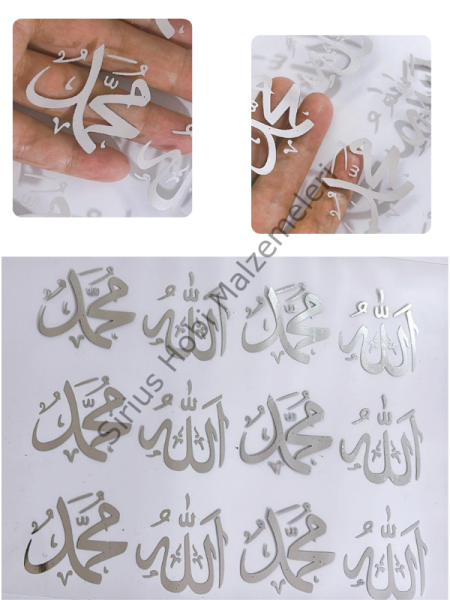 مُحَمَّد
مُحَمَّد
مُحَمَّد اللّٰهُ مُحَمَّد اللّٰهُ
مُحَمَّد اللّٰهُ مُحَمَّد اللّٰهُ
مُحَمَّد اللّٰهُ مُحَمَّد اللّٰهُ
Sirius Hobi Malzemeleri